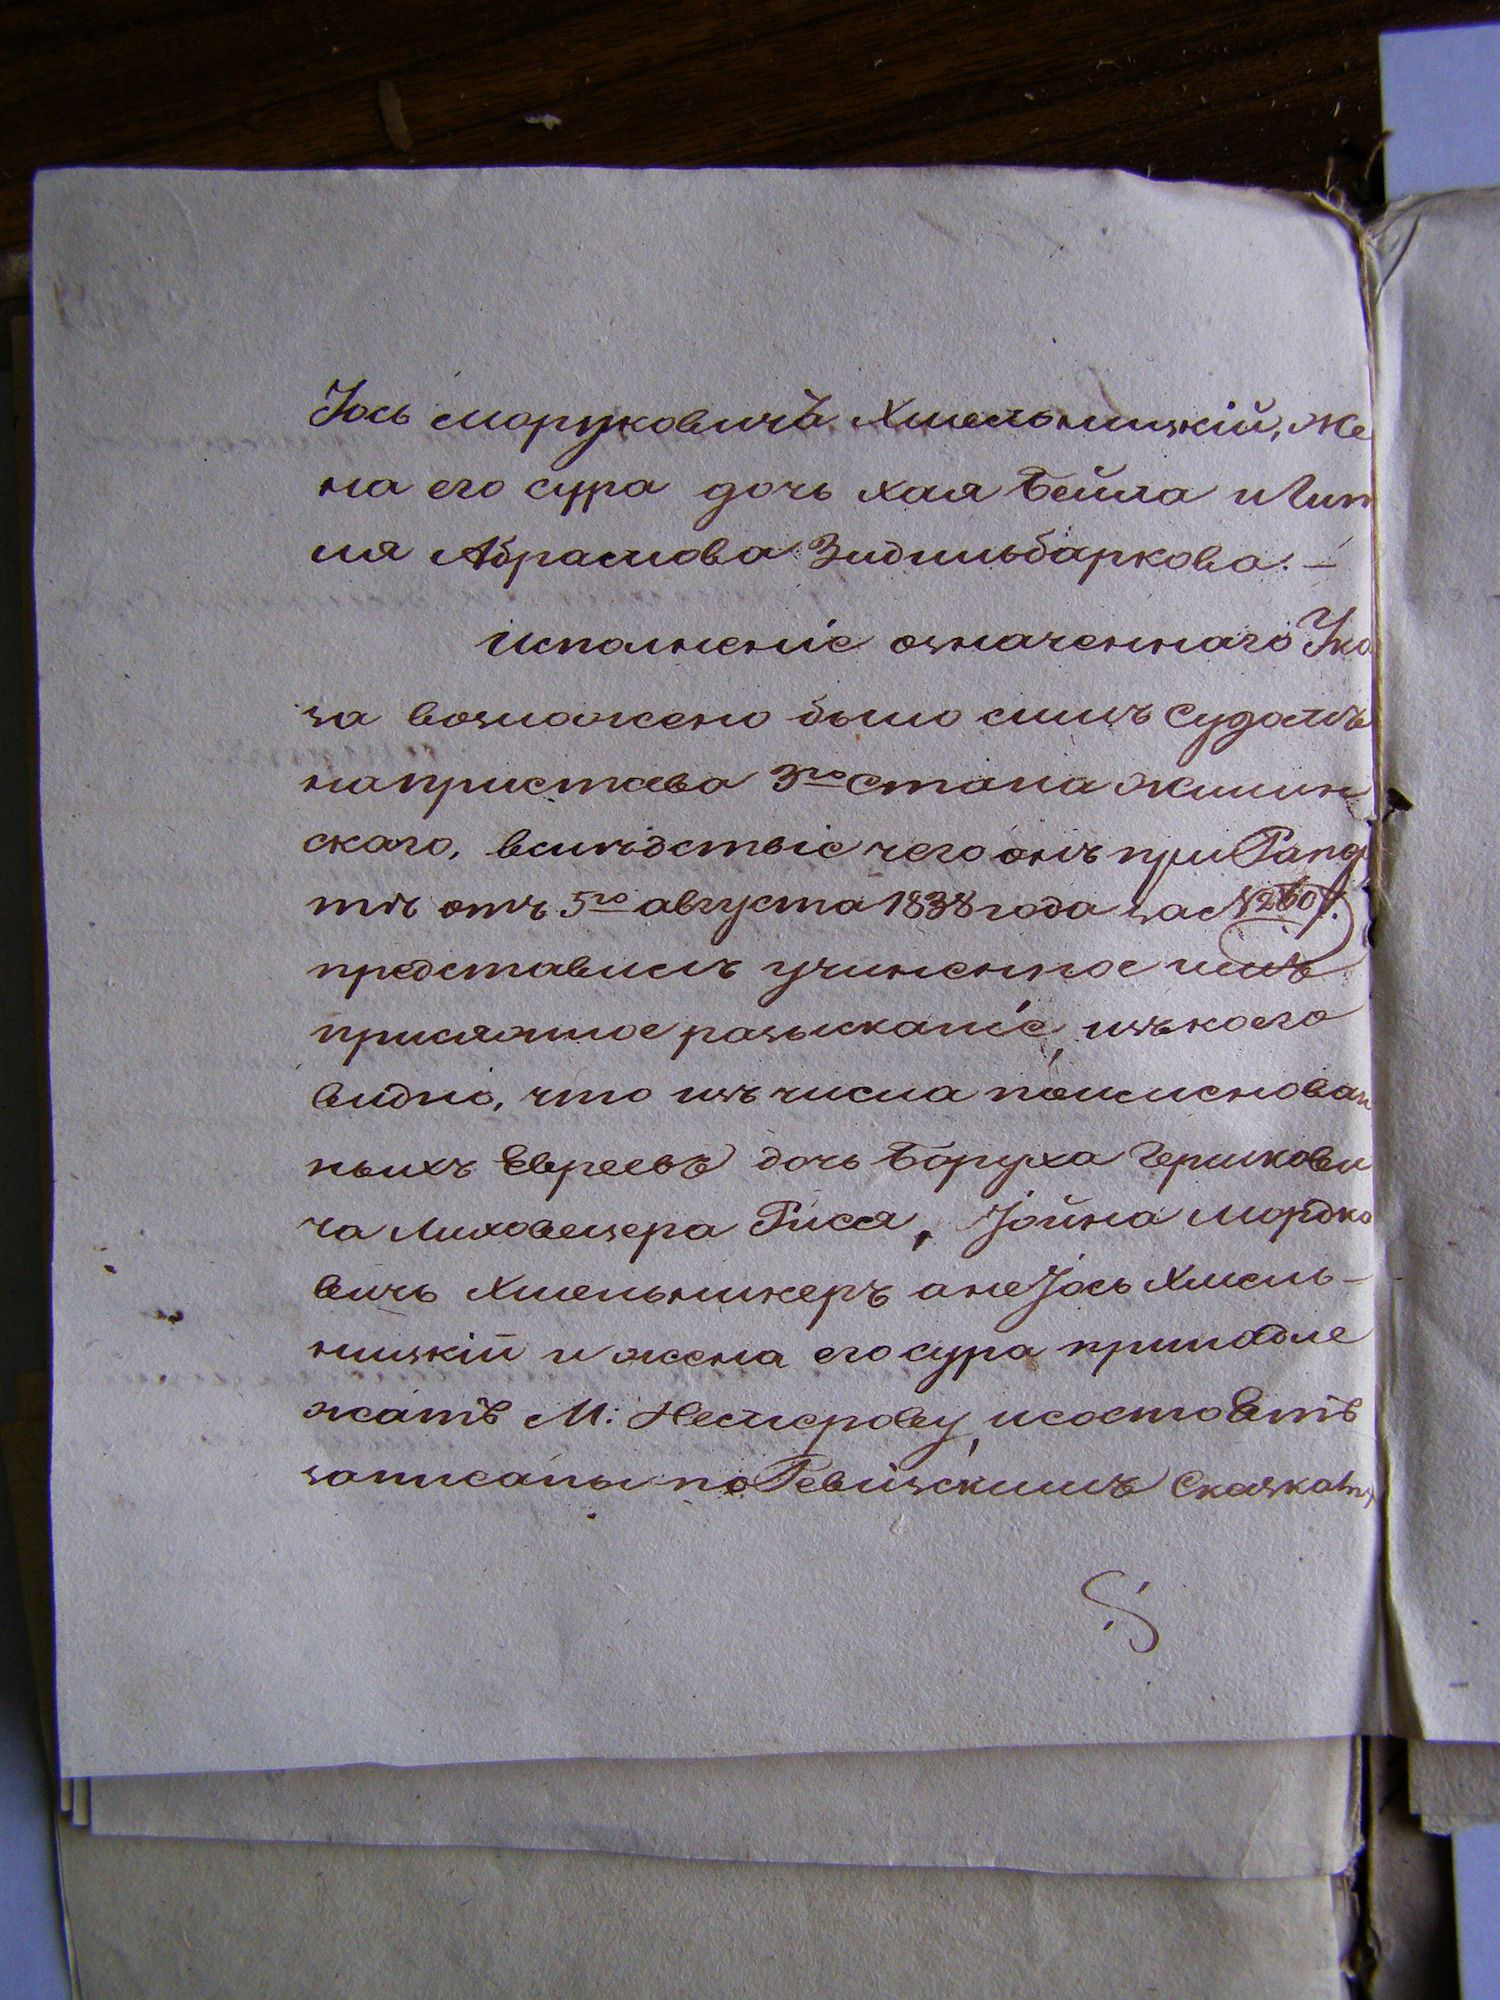 Іось Моруковичъ Хмельницкій, Же
на его сура дочь хая Бейла и
ля Абрамова Зидильбаркова. —
Исполненіе означеннаго Ука
за возложено было симъ Судомъ
на пристава 3го стана Жилин
скаго, вслѣдствіе чего онъ при Рапор
тѣ отъ 5го августа 1838 года за №
представилъ учиненное имъ
присяжное разысканіе, изъ коего
видно, что изъ числа поименован
ныхъ Евреевъ дочь Боруха Гершкови
ча Лиховецера Рися, Іойна Мордко
вичъ Хмельникеръ а не Іось Хмель-
ницкій и жена его сура принадле
жатъ М: Нестерову, и состоятъ
записаны по Ревизскимъ Сказкамъ